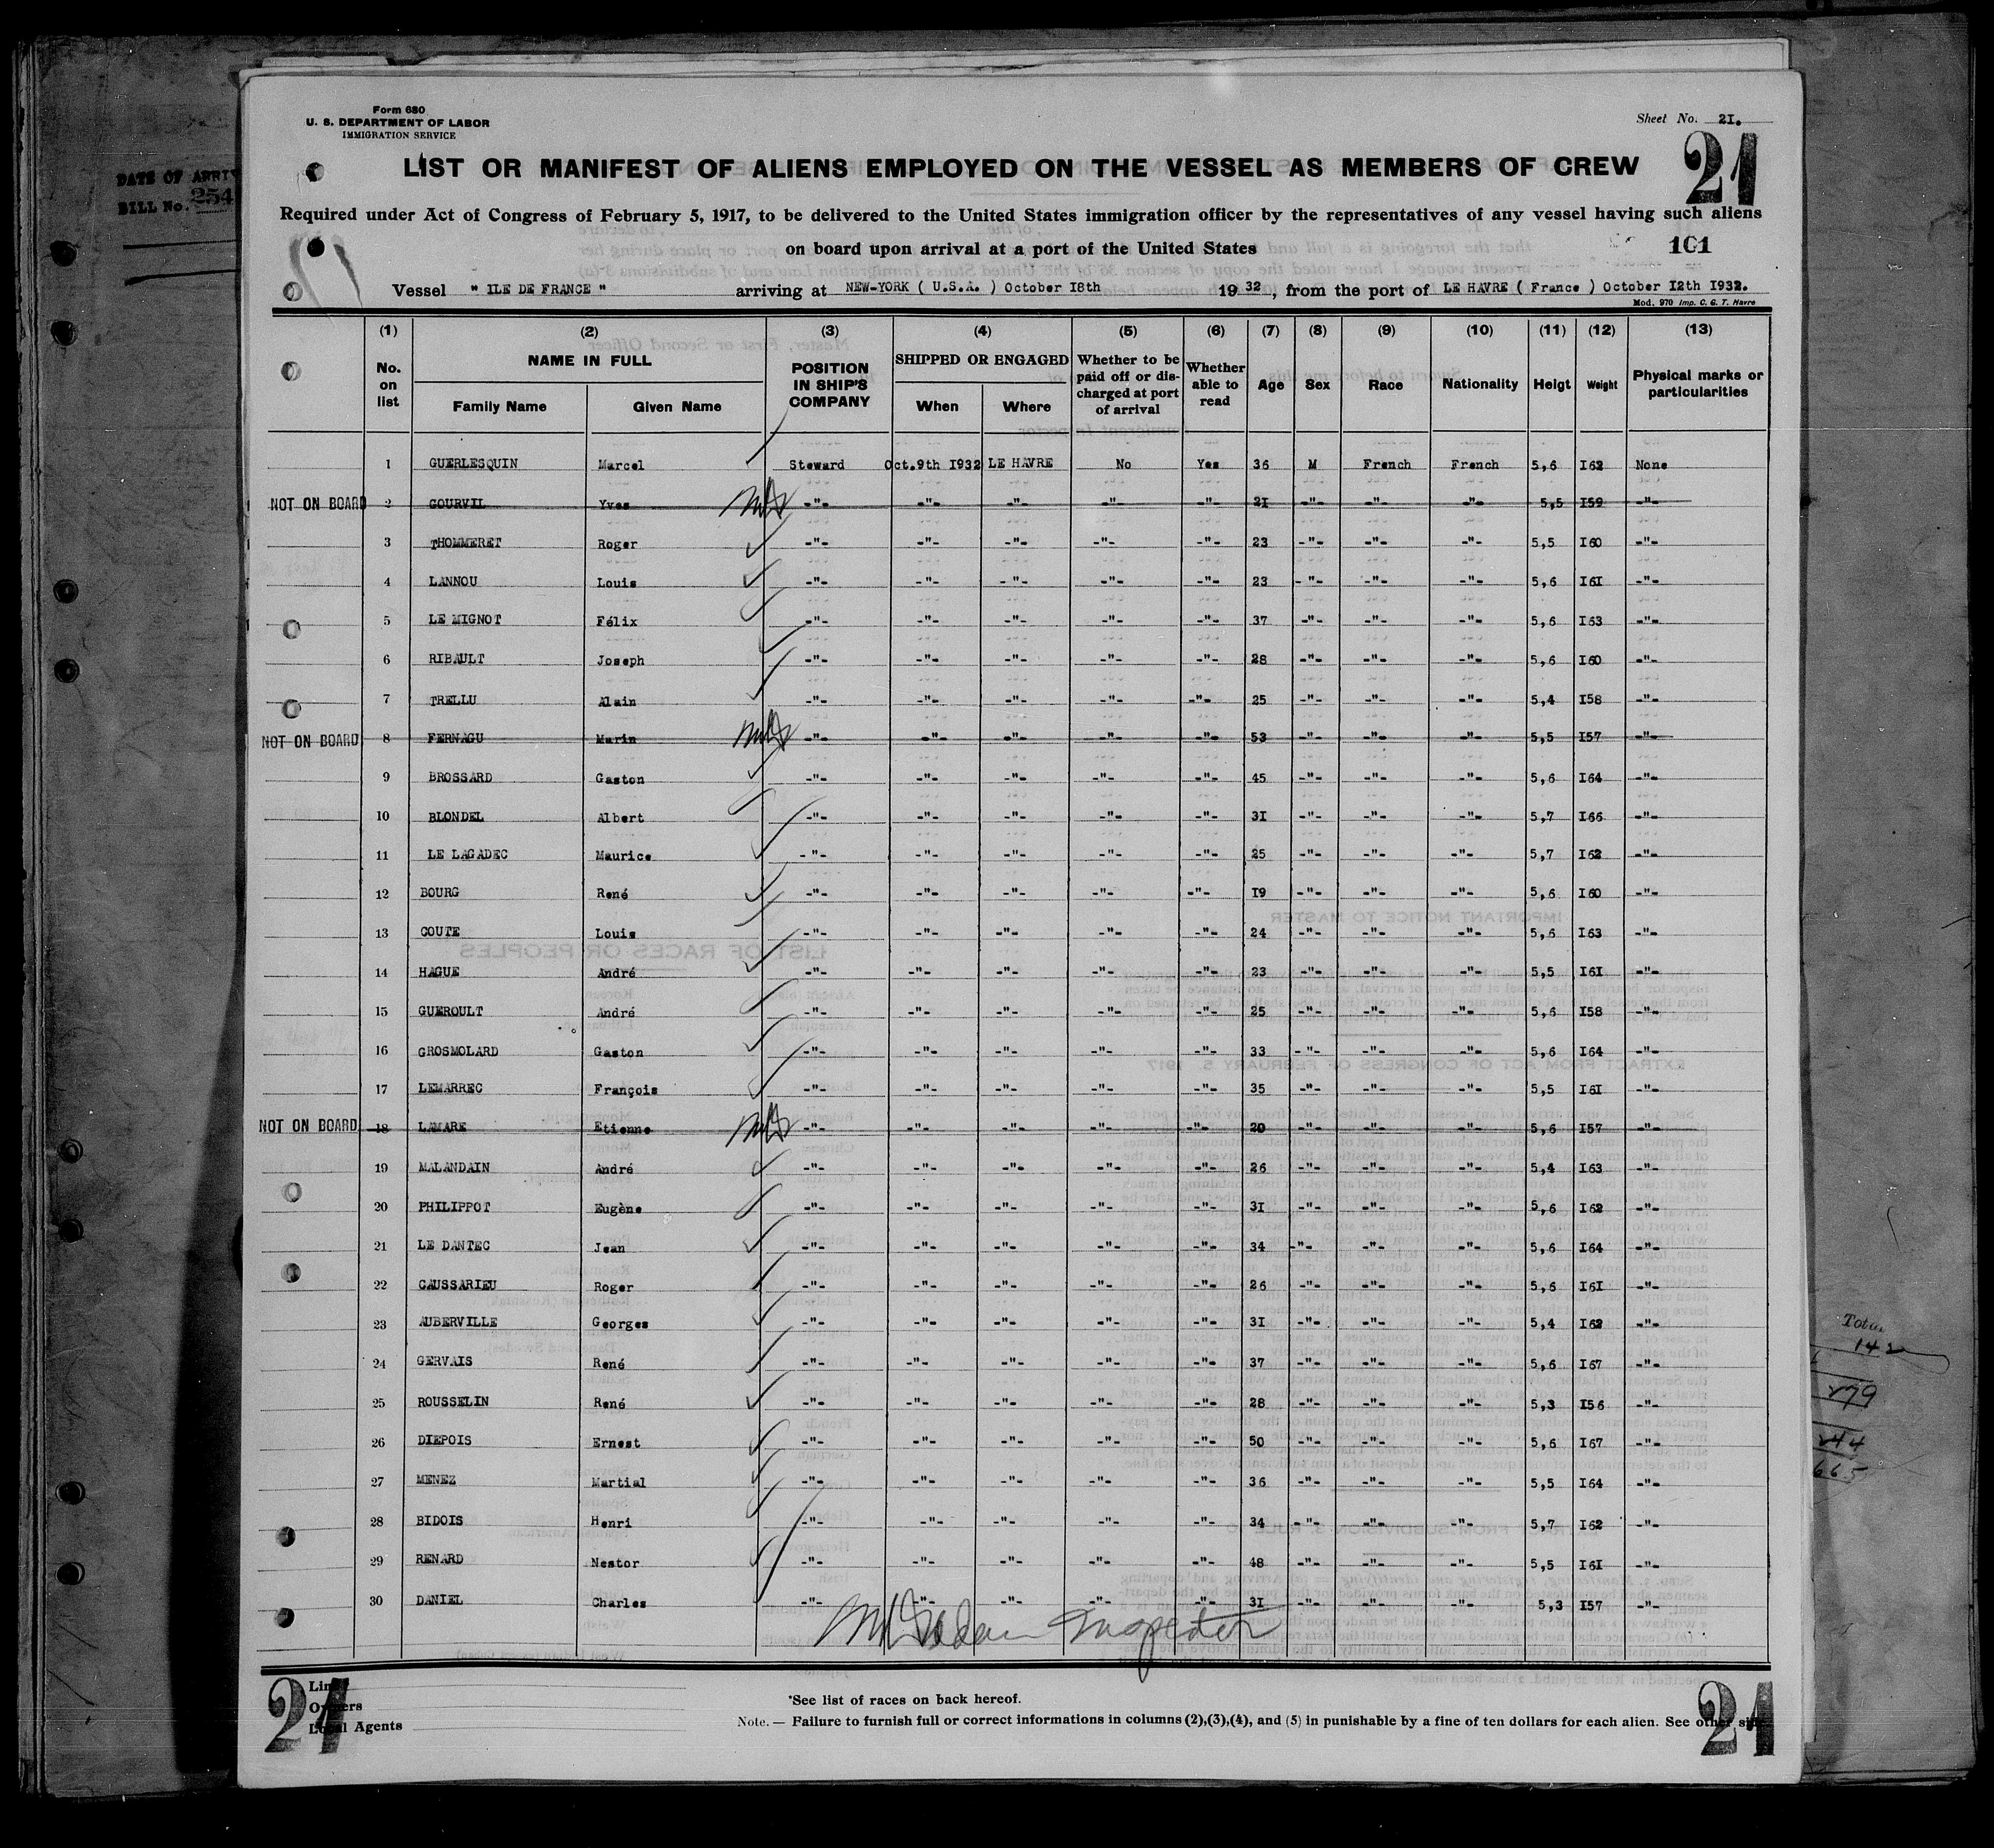 DATE OF ARRIV
BILL No. 254
Form 680
U. S. DEPARTMENT OF LABOR
IMMIGRATION SERVICE
Sheet No. 2I.
21
LIST OR MANIFEST OF ALIENS EMPLOYED ON THE VESSEL AS MEMBERS OF CREW
Required under Act of Congress of February 5, 1917, to be delivered to the United States immigration officer by the representatives of any vessel having such aliens
on board upon arrival at a port of the United States
101
Vessel " ILE DE FRANCE " arriving at NEW-YORK ( U.S.A. ) October I8th 19 32, from the port of LE HAVRE ( France ) October I2th I932.
Mod. 970 Imp. C. G. T. Havre
(1) (2) (3) (4) (5) (6) (7) (8) (9) (10) (11) (12) (13)
No. on list NAME IN FULL Family Name Given Name POSITION IN SHIP'S COMPANY SHIPPED OR ENGAGED When Where Whether to be paid off or discharged at port of arrival Whether able to read Age Sex Race Nationality Helgt Weight Physical marks or particularities
1 GUERLESQUIN Marcel Steward Oct.9th I932 LE HAVRE No Yes 36 M French French 5,6 I62 None
NOT ON BOARD 2 GOURVIL Yves -"- -"- -"- -"- -"- 2I -"- -"- -"- 5,5 I59 -"-
3 THOMMERET Roger -"- -"- -"- -"- -"- 23 -"- -"- -"- 5,5 I60 -"-
4 LANNOU Louis -"- -"- -"- -"- -"- 23 -"- -"- -"- 5,6 I6I -"-
5 LE MIGNOT Félix -"- -"- -"- -"- -"- 37 -"- -"- -"- 5,6 I63 -"-
6 RIBAULT Joseph -"- -"- -"- -"- -"- 28 -"- -"- -"- 5,6 I60 -"-
7 TRELLU Alain -"- -"- -"- -"- -"- 25 -"- -"- -"- 5,4 I58 -"-
NOT ON BOARD 8 FERNAGU Marin -"- -"- -"- -"- -"- 53 -"- -"- -"- 5,5 I57 -"-
9 BROSSARD Gaston -"- -"- -"- -"- -"- 45 -"- -"- -"- 5,6 I64 -"-
10 BLONDEL Albert -"- -"- -"- -"- -"- 3I -"- -"- -"- 5,7 I66 -"-
11 LE LAGADEC Maurice -"- -"- -"- -"- -"- 25 -"- -"- -"- 5,7 I62 -"-
12 BOURG René -"- -"- -"- -"- -"- I9 -"- -"- -"- 5,6 I60 -"-
13 COUTE Louis -"- -"- -"- -"- -"- 24 -"- -"- -"- 5,6 I63 -"-
14 HAGUE André -"- -"- -"- -"- -"- 23 -"- -"- -"- 5,5 I6I -"-
15 GUEROULT André -"- -"- -"- -"- -"- 25 -"- -"- -"- 5,6 I58 -"-
16 GROSMOLARD Gaston -"- -"- -"- -"- -"- 33 -"- -"- -"- 5,6 I64 -"-
17 LEMARREC François -"- -"- -"- -"- -"- 35 -"- -"- -"- 5,5 I6I -"-
NOT ON BOARD 18 LAMARE Etienne -"- -"- -"- -"- -"- 20 -"- -"- -"- 5,6 I57 -"-
19 MALANDAIN André -"- -"- -"- -"- -"- 26 -"- -"- -"- 5,4 I63 -"-
20 PHILIPPOT Eugène -"- -"- -"- -"- -"- 3I -"- -"- -"- 5,6 I62 -"-
21 LE DANTEC Jean -"- -"- -"- -"- -"- 34 -"- -"- -"- 5,6 I64 -"-
22 CAUSSARIEU Roger -"- -"- -"- -"- -"- 26 -"- -"- -"- 5,6 I6I -"-
23 AUBERVILLE Georges -"- -"- -"- -"- -"- 3I -"- -"- -"- 5,4 I62 -"-
24 GERVAIS René -"- -"- -"- -"- -"- 37 -"- -"- -"- 5,6 I67 -"-
25 ROUSSELIN René -"- -"- -"- -"- -"- 28 -"- -"- -"- 5,3 I56 -"-
26 DIEPOIS Ernest -"- -"- -"- -"- -"- 50 -"- -"- -"- 5,6 I67 -"-
27 MENEZ Martial -"- -"- -"- -"- -"- 36 -"- -"- -"- 5,5 I64 -"-
28 BIDOIS Henri -"- -"- -"- -"- -"- 34 -"- -"- -"- 5,7 I62 -"-
29 RENARD Nestor -"- -"- -"- -"- -"- 48 -"- -"- -"- 5,5 I6I -"-
30 DANIEL Charles -"- -"- -"- -"- -"- 3I -"- -"- -"- 5,3 I57 -"-
Inspector
Total
142
279
244
665
21
Line
Owners
Local Agents
*See list of races on back hereof.
Note. — Failure to furnish full or correct informations in columns (2),(3),(4), and (5) in punishable by a fine of ten dollars for each alien. See other side
21